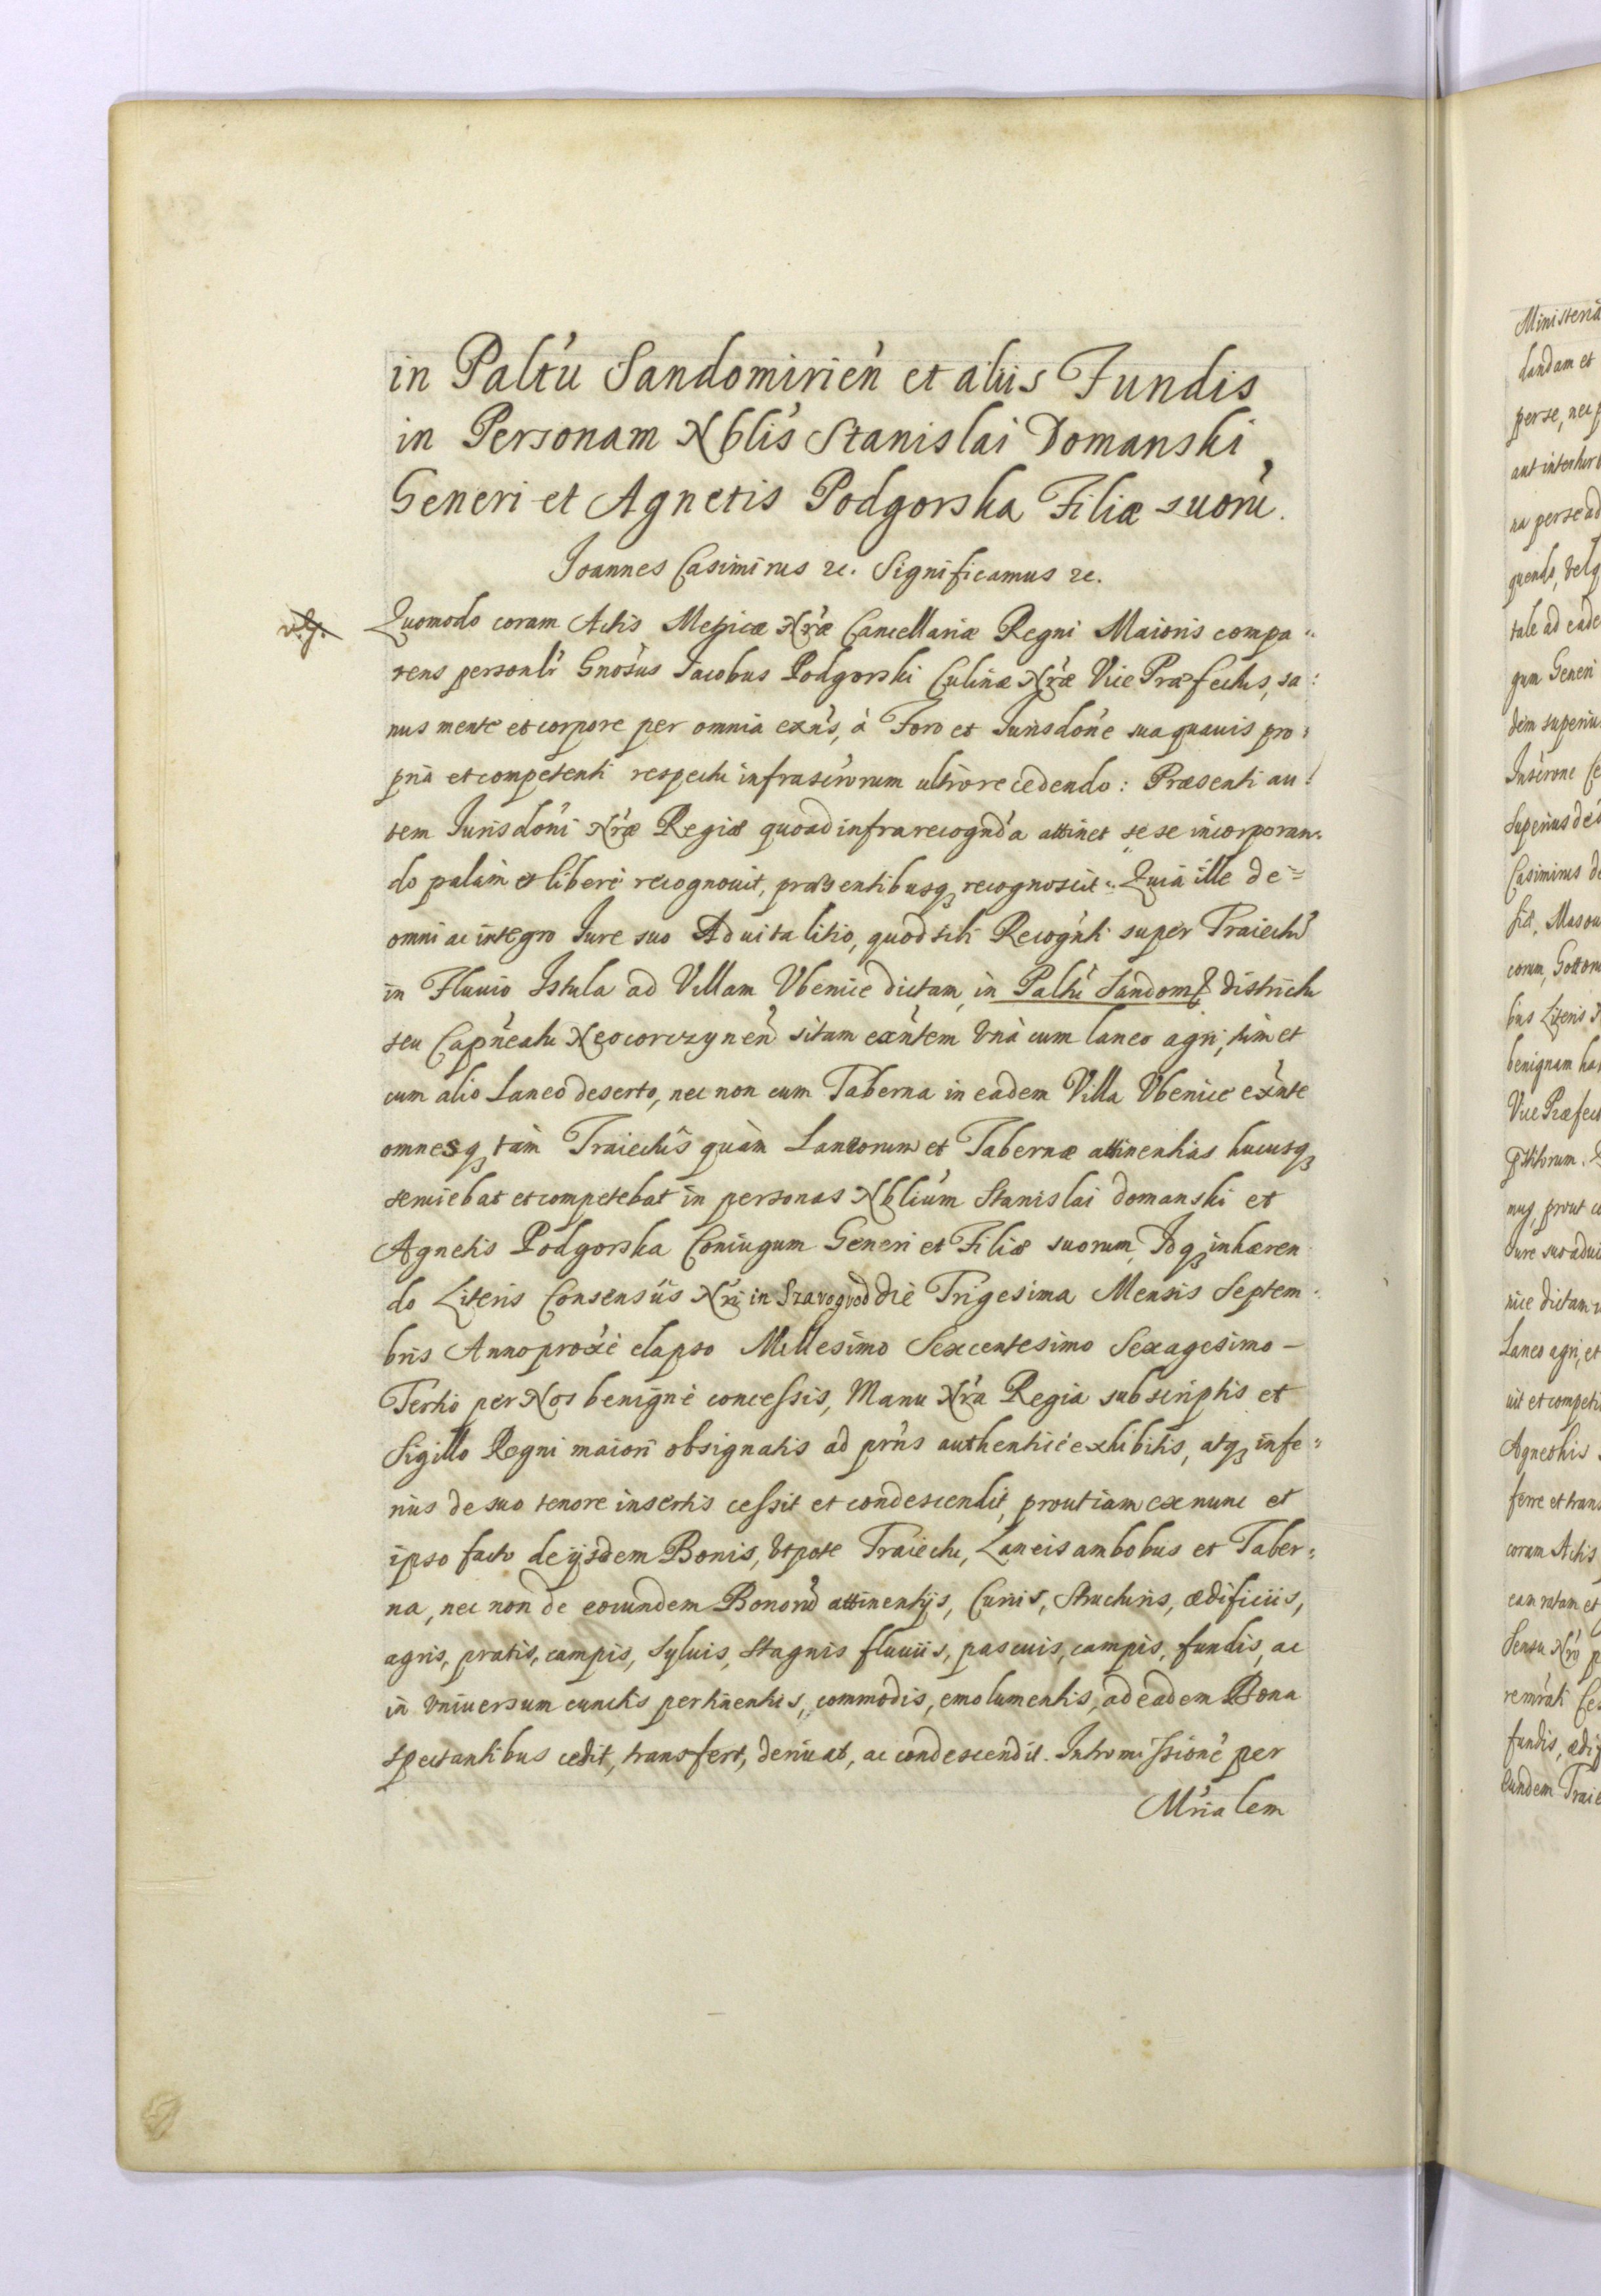 in Paltu Sandomirien et aliis Fundis
in Personam Nblis Stanislai Domanski
Generi et Agnetis Podgorska Filiæ suoru.
Joannes Casimirus etc. Significamus etc.
Quomodo coram Actis Metricæ Nræ Cancellariæ Regni Maioris compa„
rens personlr Gnosus Jacobus Podgorski Culinæ Nræ Vice Præfectus, sa:
nus mente et corpore per omnia exns, à Foro et Jurisdone sua quauis pro:
pria et competenti respectu infrascrorum ultro recedendo: Præsenti au:
tem Jurisdoni Nræ Regiæ quoad infra recognda attinet sese incorporan„
do palàm et liberè recognouit, præsentibusq recognoscit. Quia ille de=
omni ac integro Jure suo Aduitalitio, quod sibi Recognti super Traiectu
in Fluuio Istula ad Villam Vbenice dictam, in Paltu Sandom. districtu
seu Capneatu Neocorczynen sitam exntem vnà cum laneo agri, tùm et
cum alio Laneo deserto, nec non cum Taberna in eadem Villa Vbenice exnte
omnesq tàm Traiectûs quàm Laneorum et Tabernæ attinentias hucusq
seruiebat et competebat in personas Nblium Stanislai domanski et
Agnetis Podgorska Coniugum Generi et Filiæ suorum, Idq inhæren
do Literis Consensûs Nri in Szarogrod die Trigesima Mensis Septem:
bris Anno proxè elapso Millesimo Sexcentesimo Sexagesimo –
Tertio per Nos benignè concessis, Manu Nra Regia subscriptis et
Sigillo Regni maiori obsignatis ad prns authenticè exhibitis, atq infe„
rius de suo tenore insertis cessit et condescendit, prout iam ex nunc et
ipso facto de ijsdem Bonis, vtpote Traiectu, Laneis ambobus et Taber„
na, nec non de eorundem Bonoru attinentijs, Curiis, Structuris, ædificiis,
agris, pratis, campis, Syluis, Stagnis fluuiis, pascuis, campis, fundis, ac
in vniuersum cunctis pertinentiis, commodis, emolumentis, ad eadem Bona
spectantibus cedit, transfert, deriuat, ac condescendit. Intromissionè per
Mrialem
Ministeria
dandam et
per se, nec p
na per se ad
tale ad eade
gum Generi
dem superiu
Casimirus d
benignam ha
Vice Præfec
mus, prout
nice dictam
Laneo agri, et
uit et competi
ferre et trans
coram Actis
eam ratam et
fundis, ædi
eundem Traie